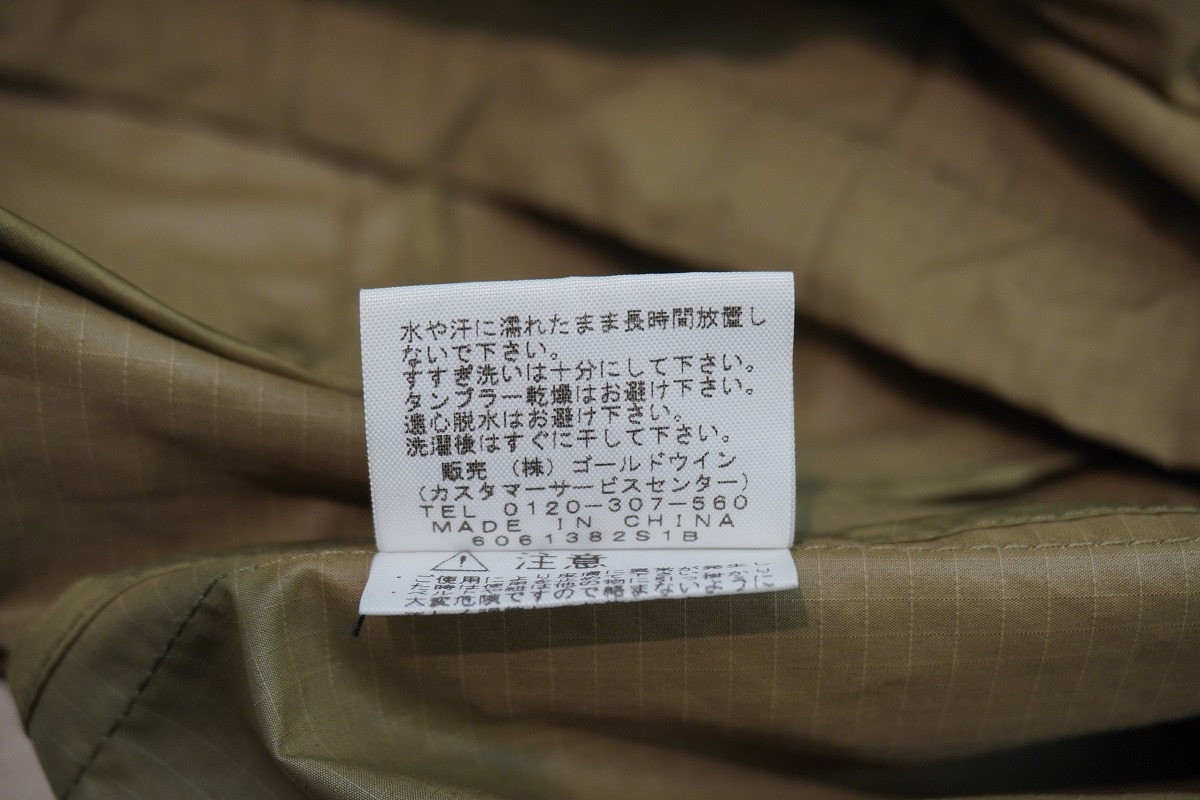 水や汗に濡れたまま長時間放置し
ないで下さい。
すすぎ洗いは十分にして下さい。
タンブラー乾燥はお避け下さい。
遠心脱水はお避け下さい。
洗濯後はすぐに干して下さい。
販売 (株) ゴールドウイン
(カスタマーサービスセンター)
TEL 0120-307-560
MADE IN CHINA
6061382S1B
注意